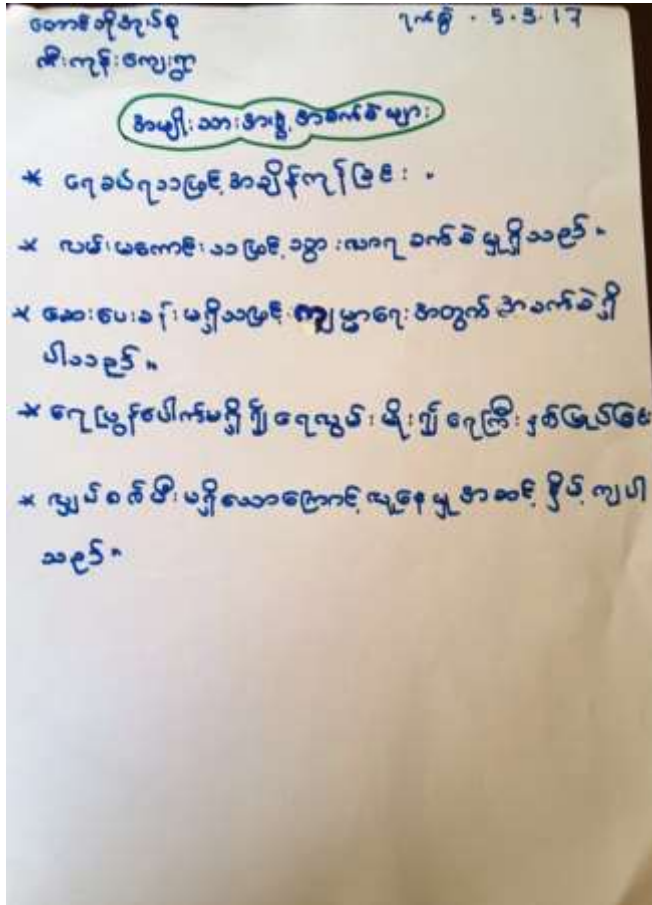 တောင်ဘိုအုပ်စု ရက်စွဲ - 5.3.17
ဆီးကုန်းကျေးရွာ
အမျိုးသားအဖွဲ့ အခက်ခဲများ
* ရေခပ်ရသဖြင့် အချိန်ကုန်ခြင်း ။
* လမ်းမကောင်းသဖြင့် သွားလာရခက်ခဲမှုရှိသည်။
* ဆေးပေးခန်းမရှိသဖြင့် ကျမ္မာရေးအတွက် အခက်ခဲရှိ
ပါသည်။
* ရေပြွန်ပေါက်မရှိ၍ ရေလွှမ်းမိုး၍ ရေကြီးနစ်မြုပ်ခြင်း
* လျှပ်စစ်မီးမရှိသောကြောင့် လူနေမှုအဆင့်နိမ့်ကျပါ
သည်။